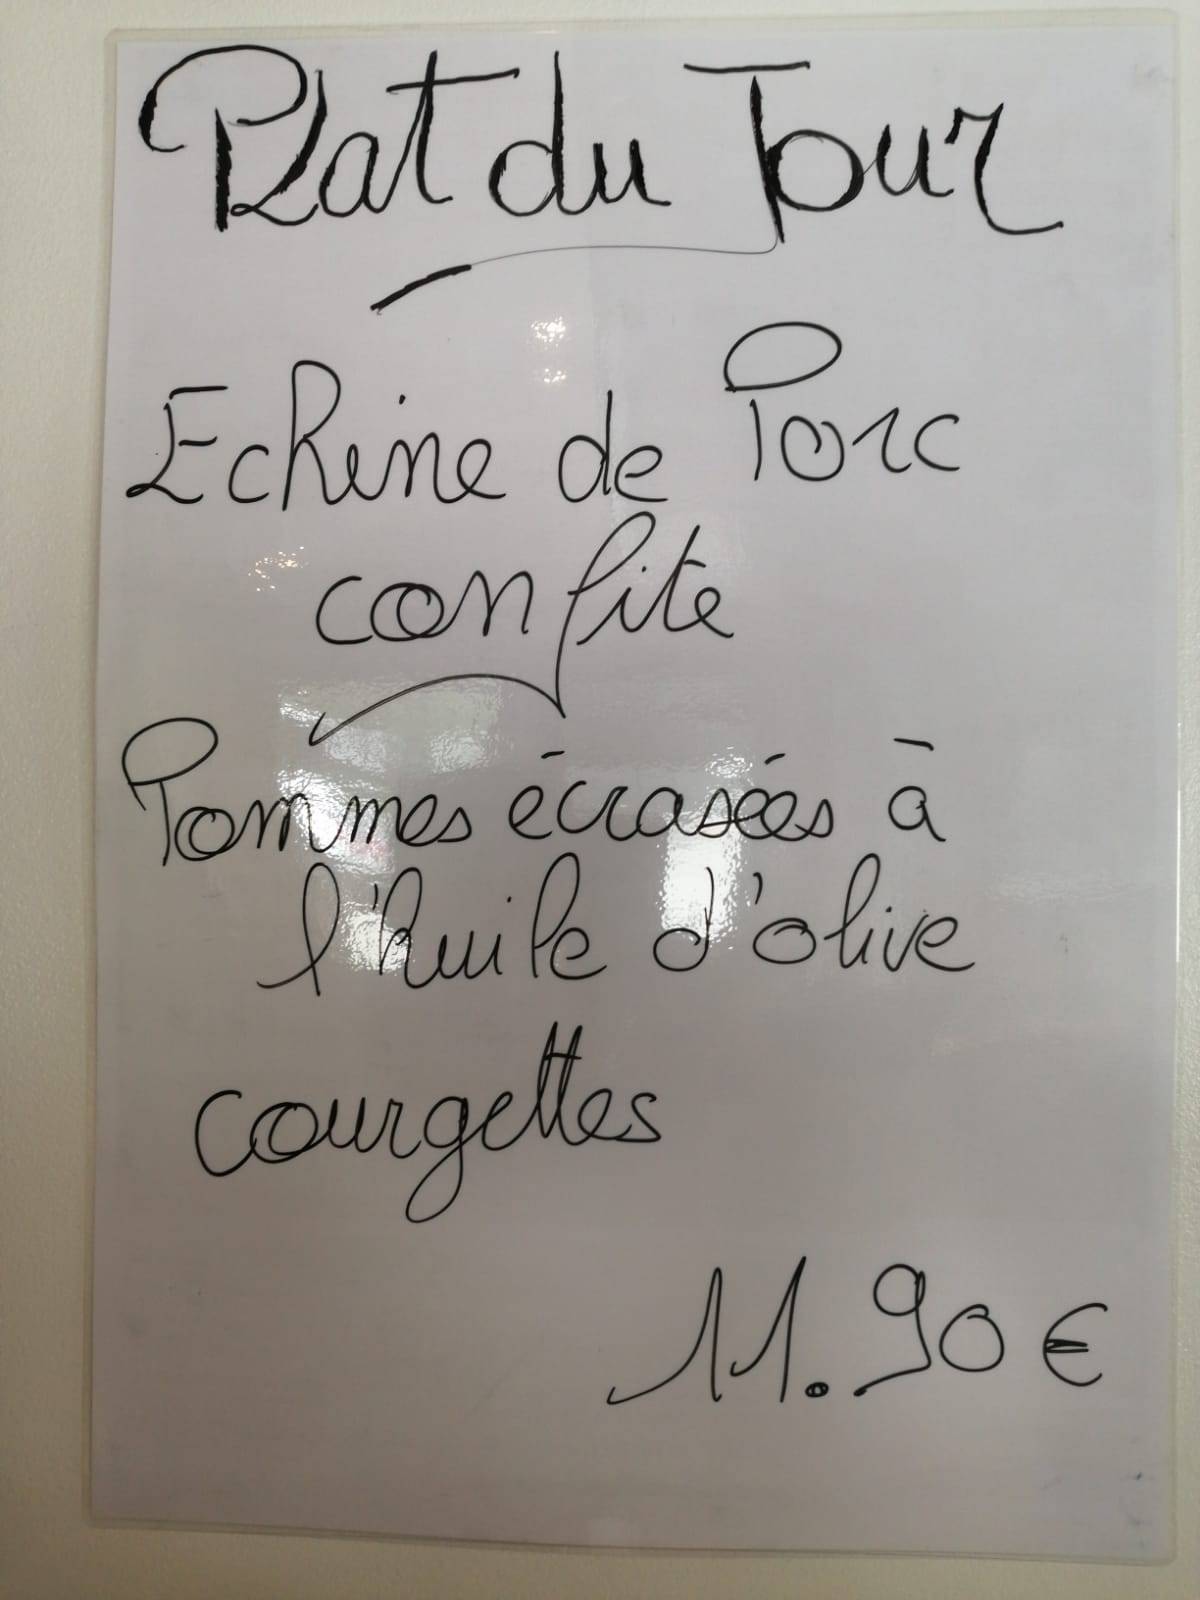 Plat du Jour
Echine de Porc
confite
Pommes écrasées à
l'huile d'olive
courgettes
11.90€